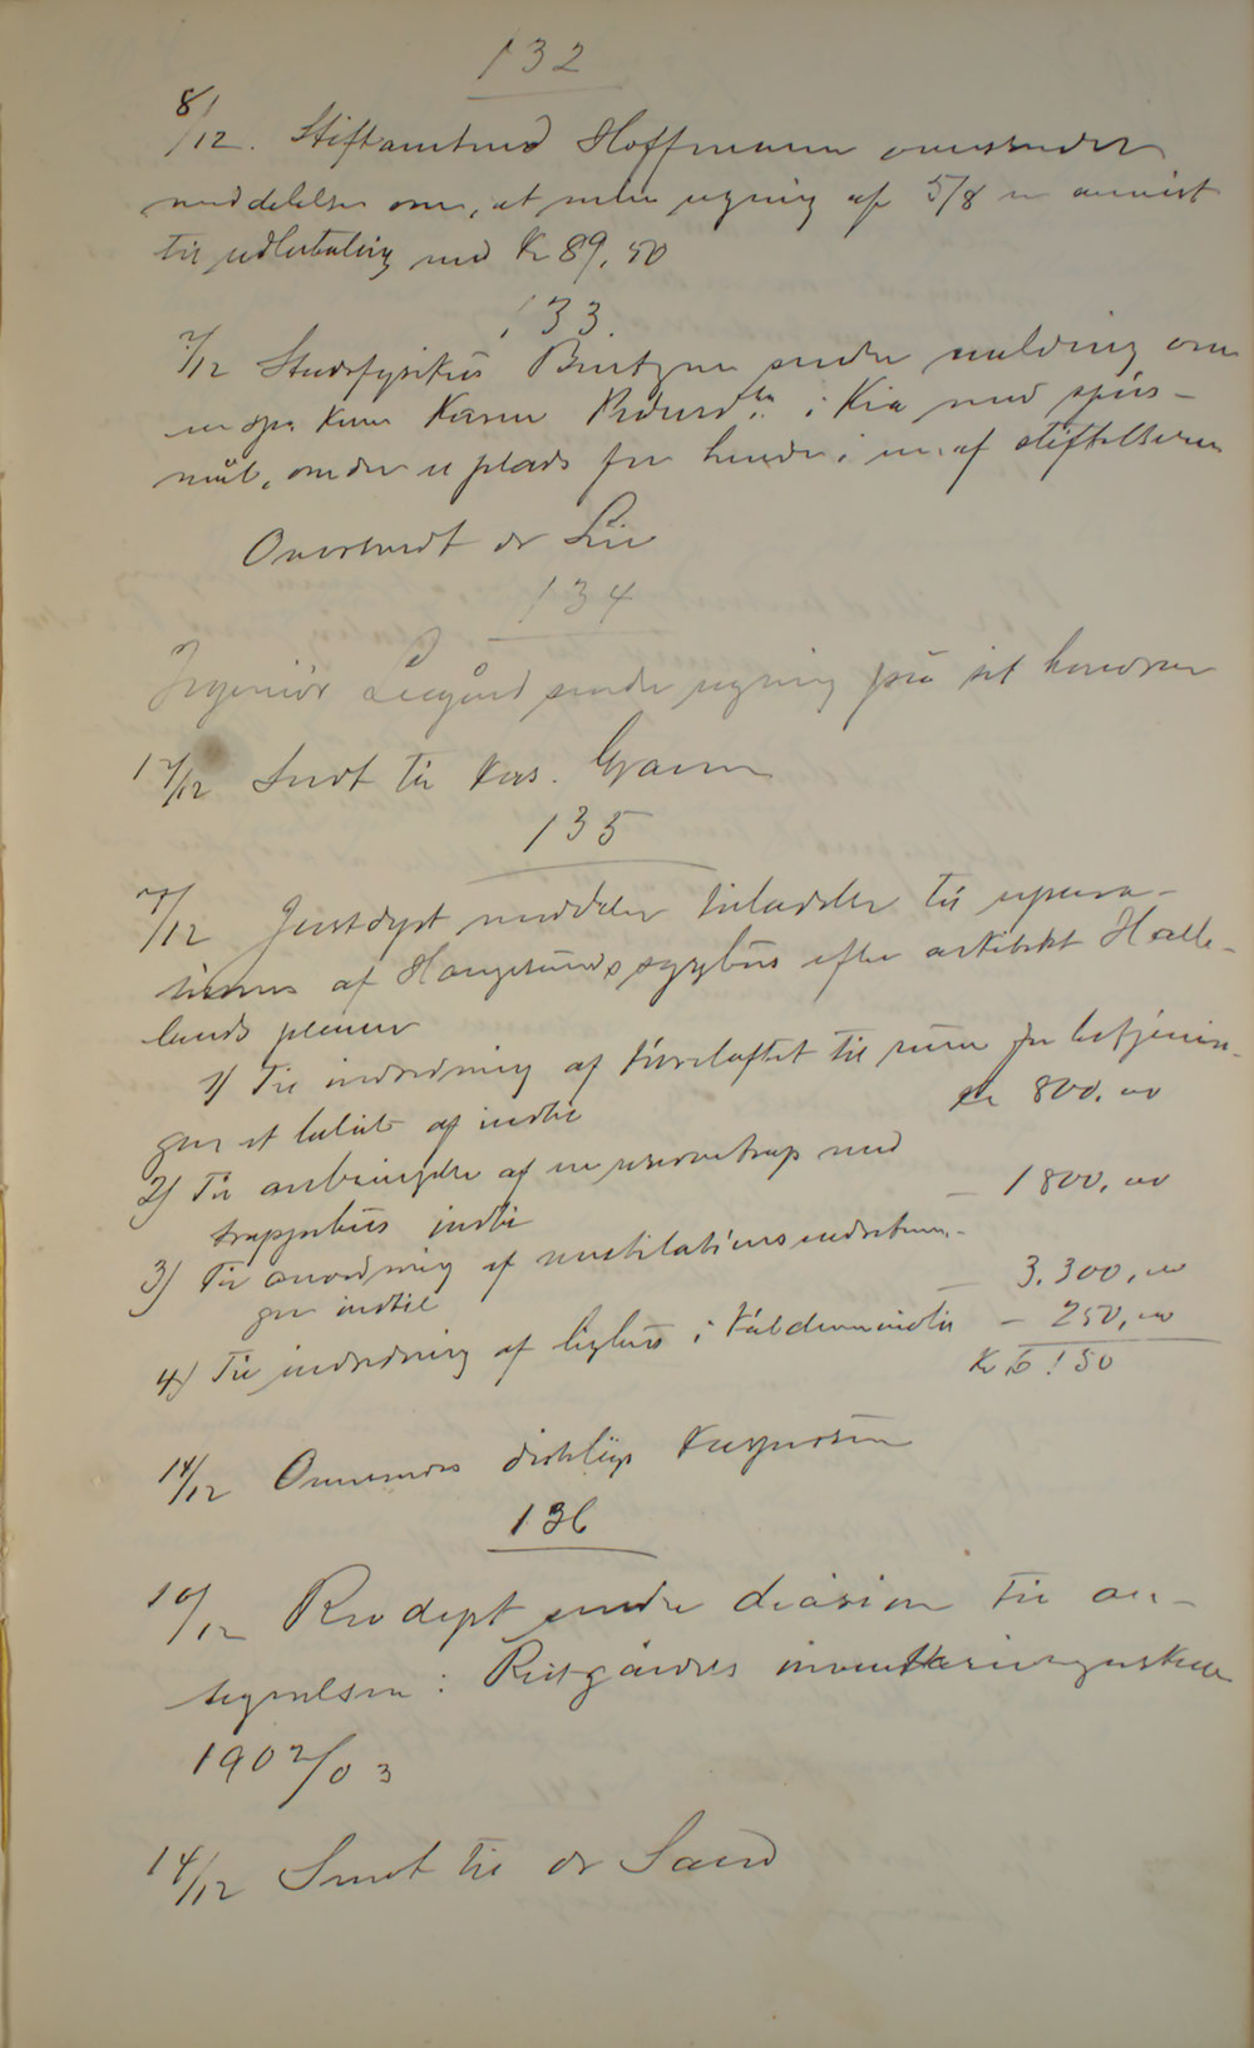 132
8/12. Stiftamtmd Hoffmann oversender
meddelelse om, at min regning af 5/8 er anvist
til udbetaling med Kr 89,50
133.
7/12 Stadsfysikus Bentzen sender melding om
en spe. kvin Karen Pedersdtr. i Kra med spørs-
mål, om der er plads for hende i en af stiftelserne
Oversendt dr Lie
134
Ingeniør Leegård sender regning på sit honorar
17/12 Sendt til kas. Gram
135
7/12 Justdept meddeler tilladelse til repara-
tioner af Haugesunds sygehus efter arkitekt Halle-
lands planer
1) Til indredning af tørreloftet til rum for betjenin-
gen et beløb af indtil Kr 800.00
2) Til anbringelse af en reservetrap med
trappehus indtil – 1800,00
3) Til anordning af ventilationsindretnin-
ger indtil – 3.300,00
4) Til indredning af lighus i kjælderen indtil – 250,00
Kr 6150
14/12 Oversendes distrlæge
136
10/12 Revdept sender decision til an-
tegnelsen i Reitgjærdets inventarieregnskab
1902/03
14/12 Sendt til dr Sand